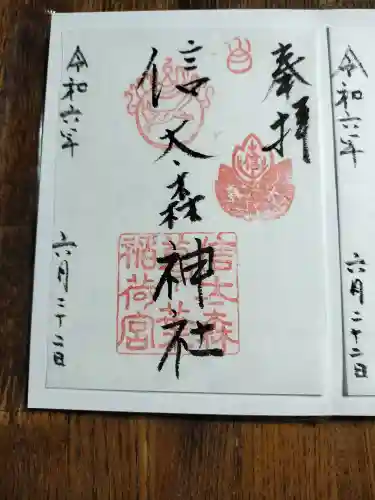 奉拝
信太森神社
信太森
葛葉
稲荷宮
令和六年
六月二十二日
令和六年
六月二十二日